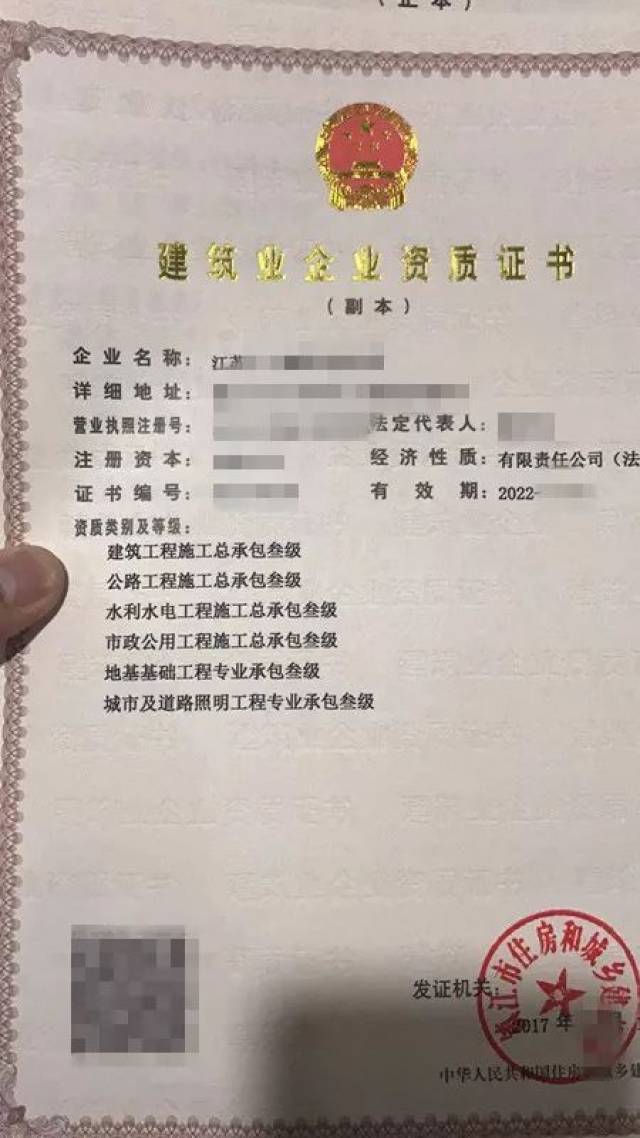 （正本）
建筑业企业资质证书
（副本）
企业名称：江苏
详细地址：
营业执照注册号： 法定代表人：
注册资本： 经济性质：有限责任公司（法
证书编号： 有效期：2022-
资质类别及等级：
建筑工程施工总承包叁级
公路工程施工总承包叁级
水利水电工程施工总承包叁级
市政公用工程施工总承包叁级
地基基础工程专业承包叁级
城市及道路照明工程专业承包叁级
江市住房和城乡建
发证机关：
2017 年
中华人民共和国住房城乡建